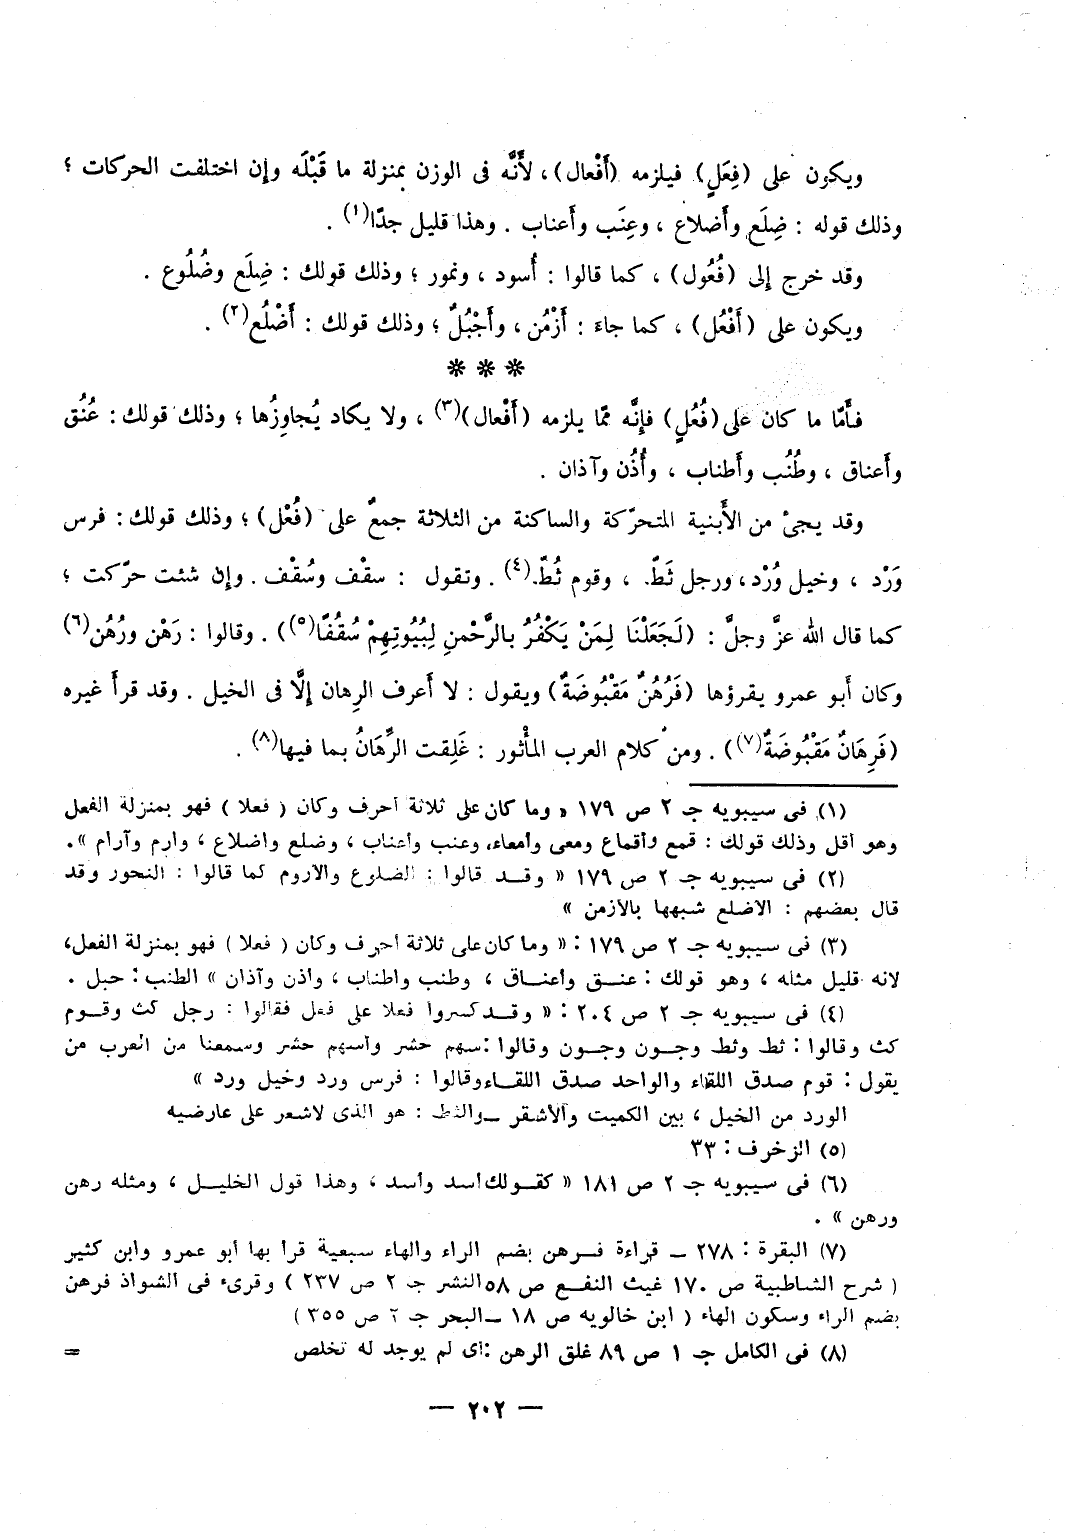 ويكون على (فِعَلٍ) فيلزمه (أَفْعال)، لأَنَّه فى الوزن بمنزلة ما قَبْلَه وإن اختلفت الحركات ؛
وذلك قوله : ضِلَع وأَضلاع ، وعِنَب وأَعناب . وهذا قليل جدًّا(١) .
وقد خرج إلى (فُعُول) ، كما قالوا : أُسود ، ونمور ؛ وذلك قولك : ضِلَع وضُلُوع .
ويكون على (أَفْعُل) ، كما جاءَ : أَزْمُن ، وأَجْبُلٌ ؛ وذلك قولك : أَضْلُع(٢) .
❊ ❊ ❊
فأَمّا ما كان على (فُعُلٍ) فإِنَّه ممّا يلزمه (أَفْعال)(٣) ، ولا يكاد يُجاوِزُها ؛ وذلك قولك : عُنُق
وأَعناق ، وطُنُب وأَطناب ، وأُذُن وآذان .
وقد يجئ من الأَبنية المتحرّكة والساكنة من الثلاثة جمعٌ على (فُعْل) ؛ وذلك قولك : فرس
وَرْد ، وخيل وُرْد، ورجل ثَطّ ، وقوم ثُطّ.(٤) . وتقول : سقْف وسُقْف . وإن شئت حرّكت ؛
كما قال الله عزَّ وجلَّ : (لَجَعَلْنَا لِمَنْ يَكْفُرُ بالرَّحْمنِ لِبُيُوتِهِمْ سُقُفًا(٥)) . وقالوا : رَهْن ورُهُن(٦)
وكان أَبو عمرو يقرؤها (فَرُهُنٌ مَقْبُوضَةٌ) ويقول : لا أَعرف الرِهان إلَّا فى الخيل . وقد قرأَ غيره
(فَرِهَانٌ مَقْبُوضَةٌ(٧)) . ومن كلام العرب المأْثور : غَلِقت الرِّهَانُ بما فيها(٨) .
(١) فى سيبويه جـ ٢ ص ١٧٩ « وما كان على ثلاثة أحرف وكان ( فعلا ) فهو بمنزلة الفعل
وهو أقل وذلك قولك : قمع وأقماع ومعى وأمعاء، وعنب وأعناب ، وضلع واضلاع ، وارم وآرام » .
(٢) فى سيبويه جـ ٢ ص ١٧٩ « وقد قالوا : الضلوع والاروم كما قالوا : النحور وقد
قال بعضهم : الاضلع شبهها بالأزمن »
(٣) فى سيبويه جـ ٢ ص ١٧٩ : « وما كان على ثلاثة أحرف وكان ( فعلا ) فهو بمنزلة الفعل،
لانه قليل مثله ، وهو قولك : عنق وأعناق ، وطنب واطناب ، واذن وآذان » الطنب : حبل .
(٤) فى سيبويه جـ ٢ ص ٢٠٤ : « وقد كسروا فعلا على فعل فقالوا : رجل كث وقوم
كث وقالوا : ثط وثط وجون وجون وقالوا :سهم حشر واسهم حشر وسمعنا من العرب من
يقول : قوم صدق اللقاء والواحد صدق اللقاء وقالوا : فرس ورد وخيل ورد »
الورد من الخيل ، بين الكميت والأشقر ــ والثط : هو الذى لاشعر على عارضيه
(٥) الزخرف : ٣٣
(٦) فى سيبويه جـ ٢ ص ١٨١ « كقولك أسد وأسد ، وهذا قول الخليل ، ومثله رهن
ورهن » .
(٧) البقرة : ٢٧٨ ــ قراءة فرهن بضم الراء والهاء سبعية قرأ بها أبو عمرو وابن كثير
( شرح الشاطبية ص ١٧٠ غيث النفع ص ٥٨ النشر جـ ٢ ص ٢٣٧ ) وقرىء فى الشواذ فرهن
بضم الراء وسكون الهاء ( ابن خالويه ص ١٨ ــ البحر جـ ٢ ص ٣٥٥ )
(٨) فى الكامل جـ ١ ص ٨٩ غلق الرهن :أى لم يوجد له تخلص =
— ٢٠٢ —